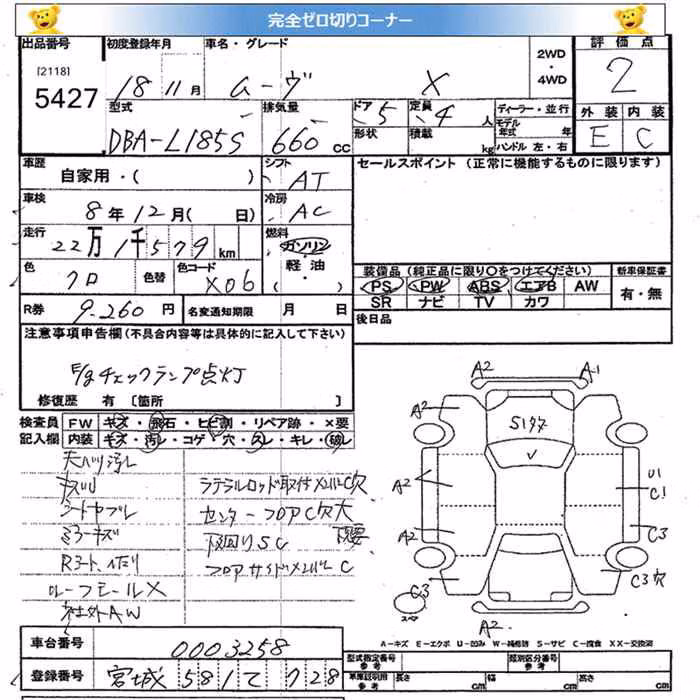 完全ゼロ切りコーナー
出品番号
[2118]
5427
初度登録年月
18 11月
車名・グレード
ムーヴ X
2WD
・
4WD
評価点
2
外装 内装
E C
型式
DBA-L185S
排気量
660cc
ドア 5
形状
定員 4人
積載 kg
ディーラー・並行
モデル年式 年
ハンドル 左・右
車歴
自家用・( )
シフト
AT
セールスポイント (正常に機能するものに限ります)
車検
8年12月( 日)
冷房
AC
走行
22万1千579km
燃料
ガソリン
・
軽・油
色
クロ
色替
色コード
X06
装備品 (純正品に限り○をつけてください)
PS PW ABS エアB AW
SR ナビ TV カワ
新車保証書
有・無
R券
9,260円
名変通知期限 月 日
後日品
注意事項申告欄 (不具合内容等は具体的に記入して下さい)
E/gチェックランプ点灯
修復歴 有 〔箇所 〕
検査員
記入欄
FW キズ・飛石・ヒビ割・リペア跡・×要
内装 キズ・汚レ・コゲ・穴・スレ・キレ・破レ
ラテラルロッド取付メンバーC欠
シートヤブレ
センターフロアC欠大
ミラーキズ
下回りSC
フロアサイドメンバーC
ルーフモールX
社外AW
A2 A1
A2
S197
A2
U1
C1
A2
C3
C3
C3欠
スペア
A2
A-キズ E-エクボ U-凹み W-補修跡 S-サビ C-腐食 XX-交換済
車台番号
0003258
登録番号
宮城 581 て 728
型式指定番号
参考
類別区分番号
参考
車庫証明用
参考
長さ cm
幅 cm
高さ cm